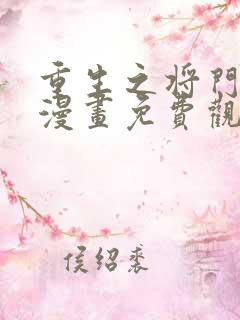 重生之将门
漫畫免費觀
侯绍裘